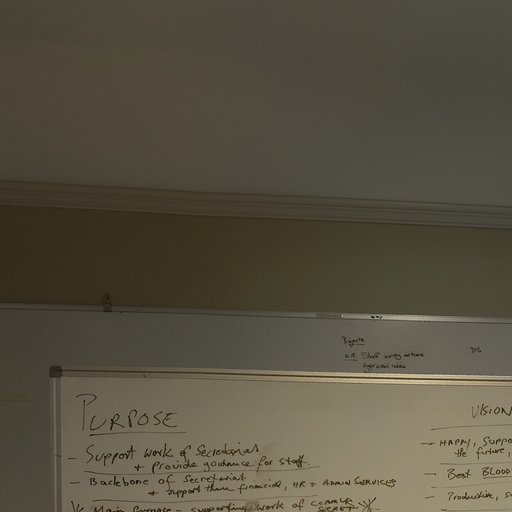 Projects
HR: Staff survey actions
Appraisal
DIS
PURPOSE
- Support work of Secretariat
+ provide guidance for staff.
- Backbone of Secretariat
+ support them financial, HR & ADMIN SERVICES
Main Purpose - supporting work of
SECRET.
VISION
- HAPPY, SUPPO
the future,
- Best BLOOD
- Productive, s